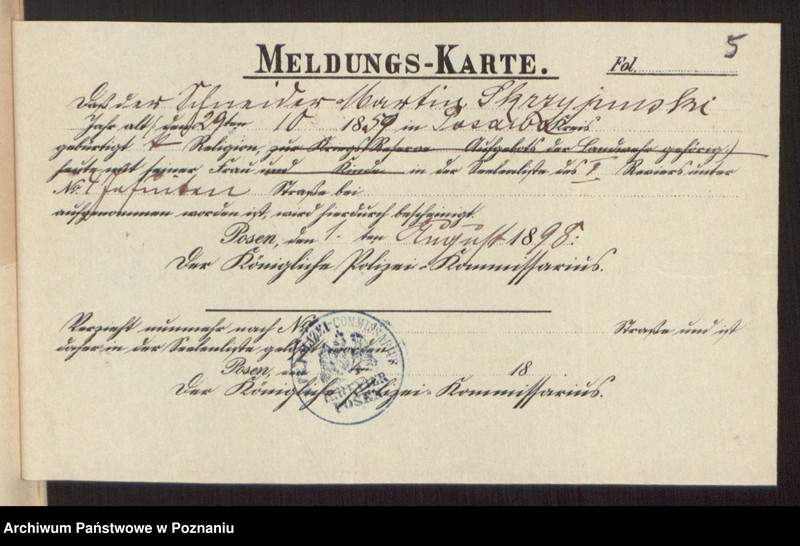 5
MELDUNGS-KARTE. Fol.
Daß der Schneider Martin
Jahr alt/ den 29ten 10 1859 in Kreis
gebürtigt k Religion, zur Kriegs-Reserve Aufgebots der Landwehr gehörig,
heute mit seiner Frau und Kinde in der Seelenliste des Reviers unter
No. Straße bei
aufgenommen worden ist, wird hierdurch bescheinigt.
Posen, den 1. ten August 1898.
Der Königliche Polizei-Kommissarius.
Verzieht nunmehr nach No. Straße und ist
daher in der Seelenliste gelöscht worden
Posen, den 18
Der Königliche Polizei-Kommissarius.
POLIZEI-COMMISSARIUS
REVIER
POSEN
Archiwum Państwowe w Poznaniu